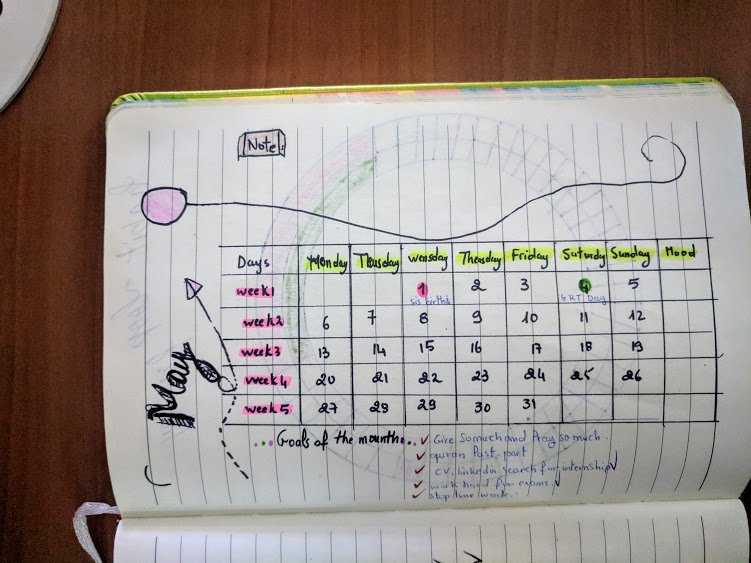 Note:
Days Monday Thusday wensday Thersday Friday Saturday Sunday Mood
week1 1 2 3 4 5
sis birthday GRT Day
week2 6 7 8 9 10 11 12
week3 13 14 15 16 17 18 19
week4 20 21 22 23 24 25 26
week5 27 28 29 30 31
May
Goals of the mounth...
✓ Give so much and Pray so much
✓ quran Past part
✓ CV, linkedin search for internship ✓
✓ work hard for exams ✓
✓ stop time waste..